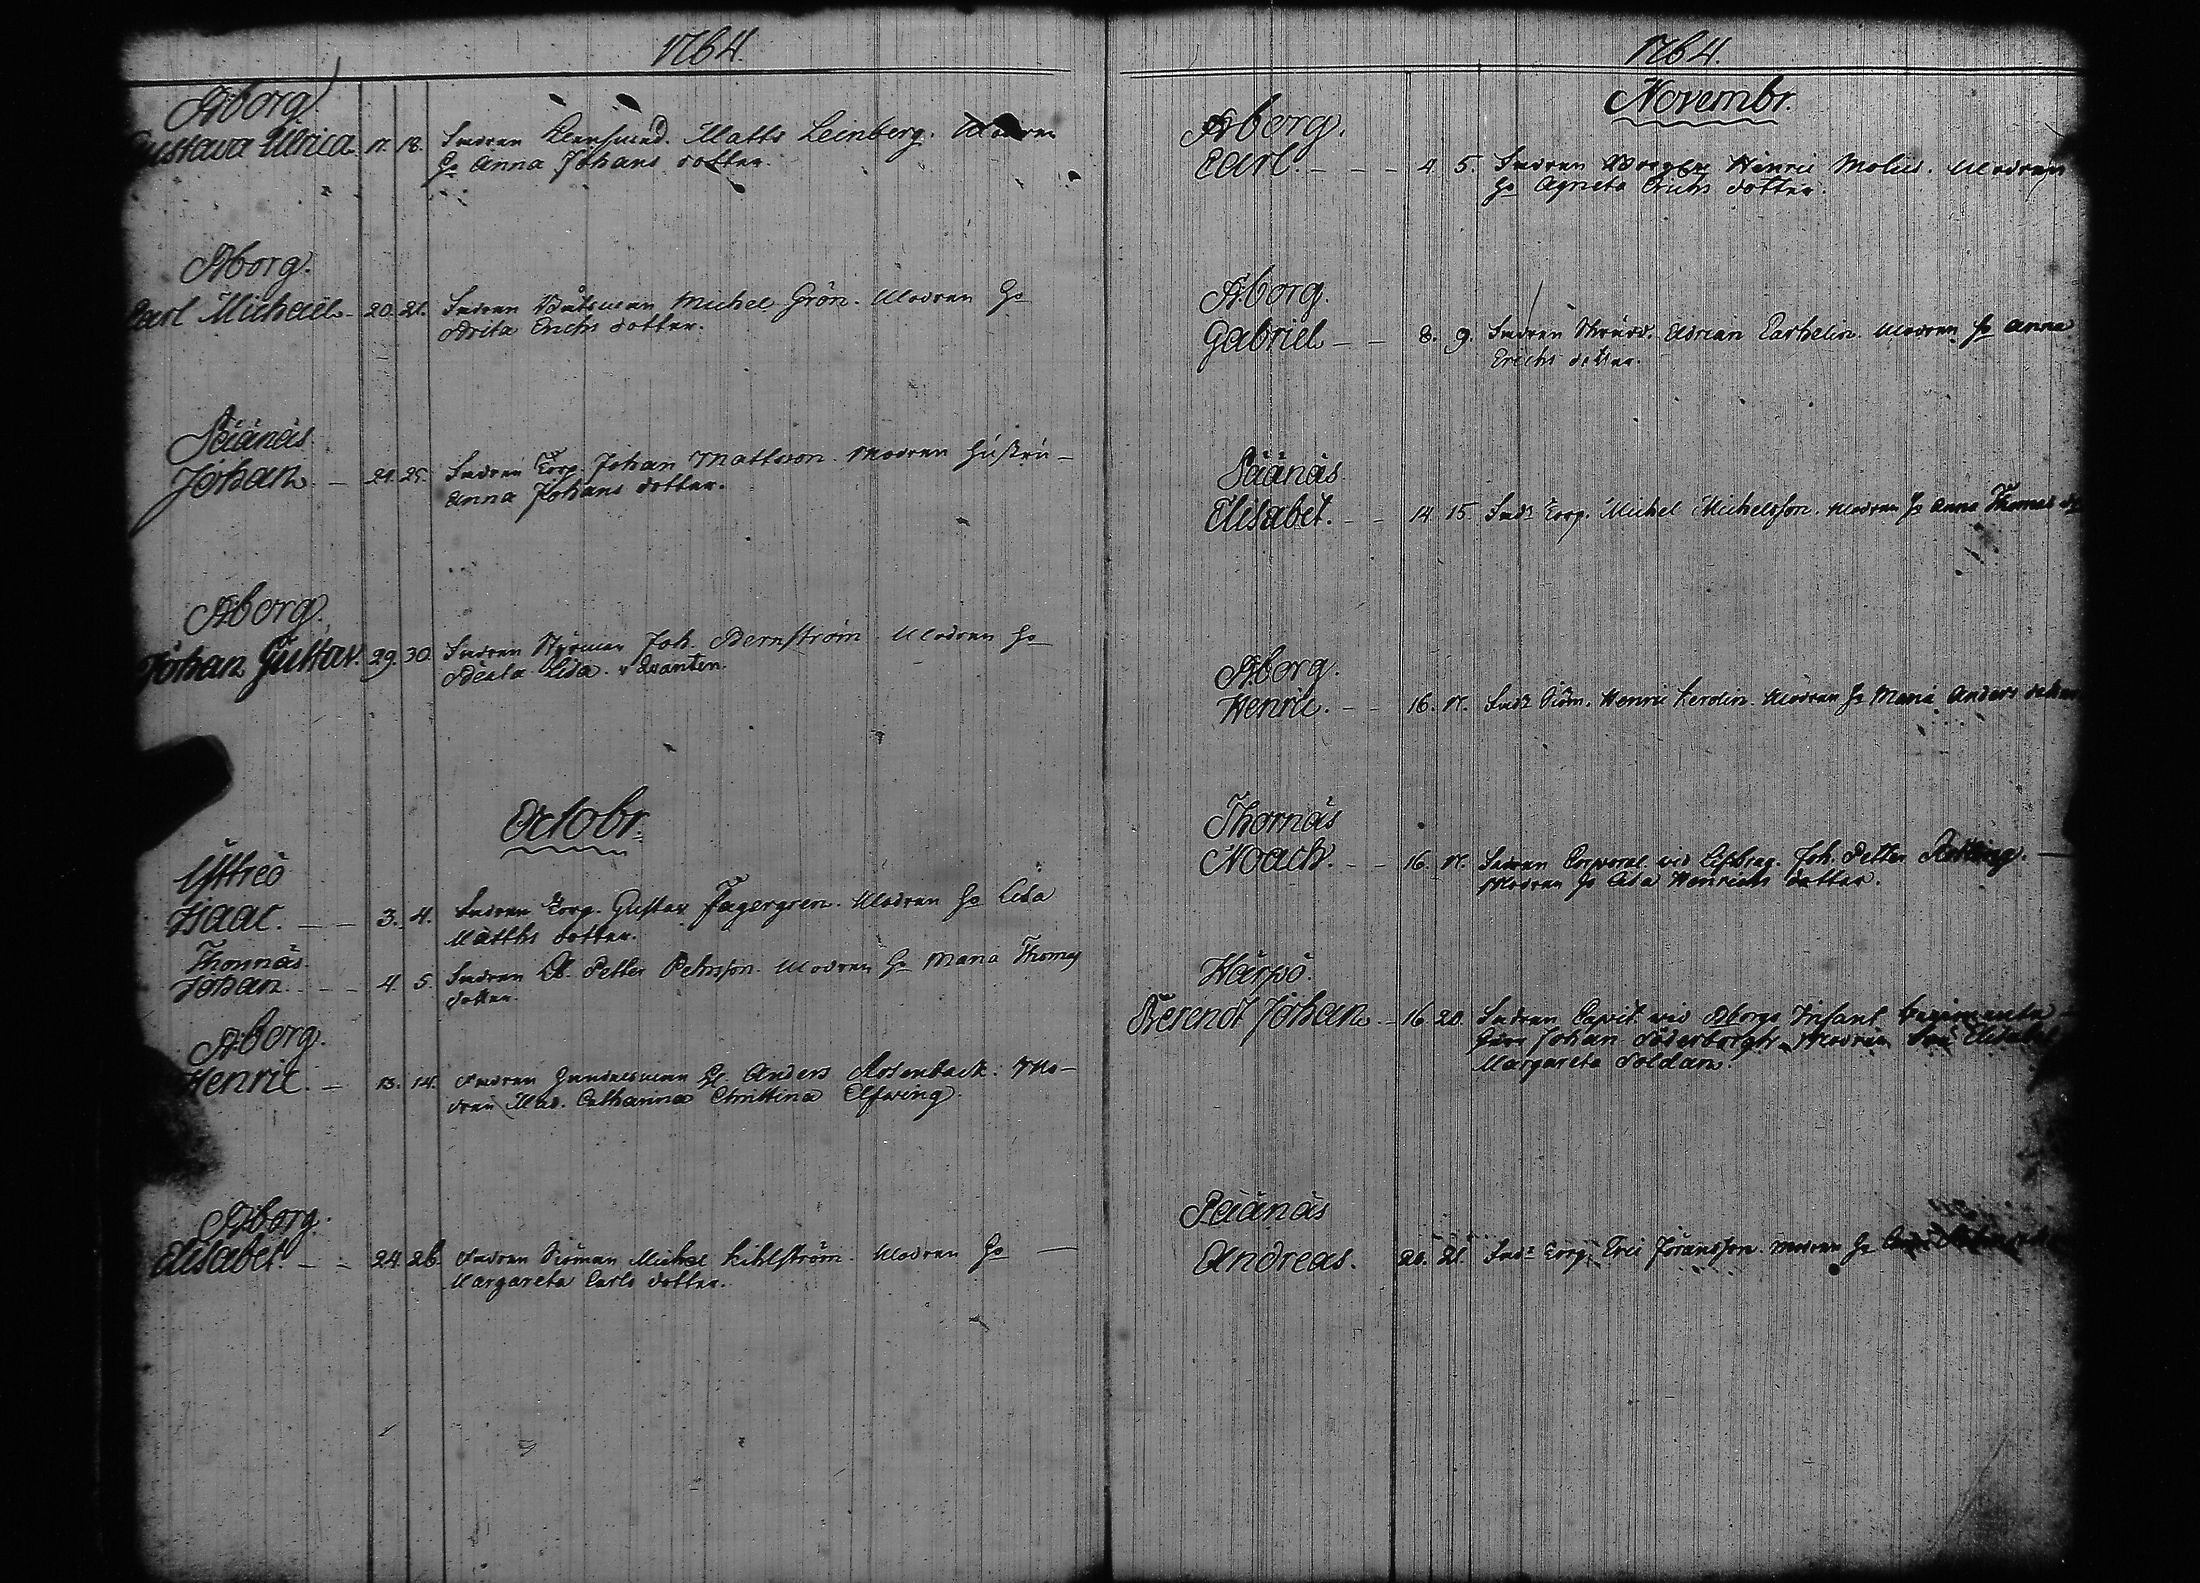 1764.
Åborg.
Gustava Ulrica. 17. 18. Fadren Klensmed. Matts Leinberg. Modren
Hu Anna Johans dotter.
Åborg.
Carl Michael. 20. 21. Fadren Båtsman Michel Grön. Modren Hu
Brita Erichs dotter.
Päänäs
Johan. 24. 25. Fadren Torp. Johan Mattsson. Modren Hustru
Anna Johans dotter.
Åborg.
Johan Gustav. 29. 30. Fadren Styrman Joh. Bernström. Modren Hu
Beata Lisa v Qvanten.
Octobr.
Ystteö
Isaac. 3. 4. Fadren Torp. Gustav Fagergren. Modren Hu Lisa
Matths dotter.
Thornäs.
Johan. 4. 5. Fadren Petter Pehrsson. Modren Hu Maria Thomas
dotter.
Åborg.
Henric. 13. 14. Fadren Handelsman Hr Anders Rosenback. Mo-
dren Mad. Catharina Christina Elfving.
Åborg.
Elisabet. 24. 26. Fadren Siöman Michel Kihlström. Modren Hu
Margareta Carls dotter.
1764.
Novembr.
Åborg.
Carl. 4. 5. Fadren Henric Molus. Modren
Hu Agneta Erichs dotter.
Åborg.
Gabriel 8. 9. Fadren Skrädd. Adrian Carhelin. Modren Hu Anna
Erichs dotter.
Päänäs
Elisabet. 14 15. Fadr Torp. Michel Michelsson. Modren Hu Anna Thomas dr
Åborg.
Henric. 16. 17. Fadr Siöm. Henric Kerolin. Modren Hu Maria Anders dotter
Thornäs
Noach. 16. 17. Fadren Corporal vid Joh. Petter
Modren Hu Lisa Henrichs dotter.
Härpö.
Berendt Johan. 16 20. Fadren Capit. vid Åborgs Infant. Regimente
Herr Johan Söderborgh. Modren Fru Elisabet
Margareta Soldan.
Päänäs
Andreas. 20. 21. Fadr Torp. Eric Jöransson. Modren Hu